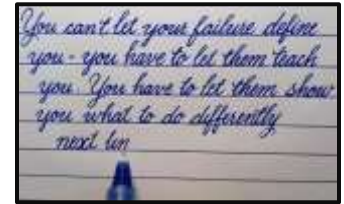 You can't let your failure define
you - you have to let them teach
you. You have to let them show
you what to do differently
next tim